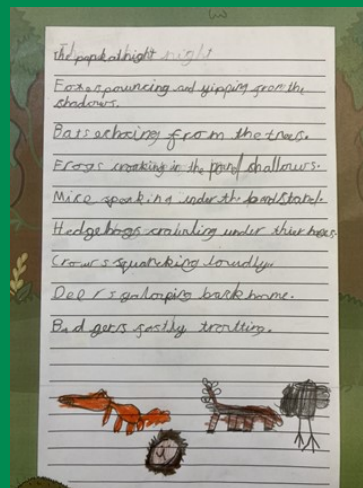 The park at night night
Foxes pouncing and yipping from the
shadows.
Bats echoing from the trees.
Frogs croaking in the pond shallows.
Mice speaking under the bandstand.
Hedgehogs under thier
Crows squawking loudly.
Deers galloping back home.
Badgers trotting.